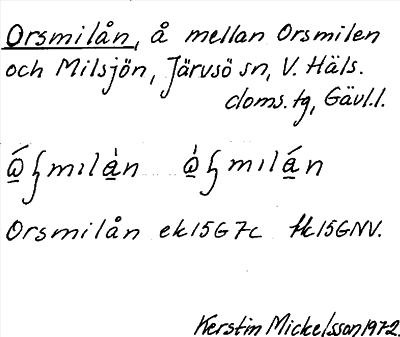 Orsmilån, å mellan Orsmilen
och Milsjön, Järvsö sn, V. Häls.
doms. tg, Gävl.l.
Orsmilån ek15G7c tk15GNV.
Kerstin Mickelsson 1972.